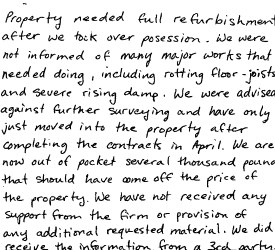 Property needed full refurbishment
after we took over posession. We were
not informed of many major works that
needed doing, including rotting floor-joists
and severe rising damp. We were advised
against further surveying and have only
just moved into the property after
completing the contracts in April. We are
now out of pocket several thousand pound
that should have come off the price of
the property. We have not received any
support from the firm or provision of
any additional requested material. We did
receive the information from a 3rd party